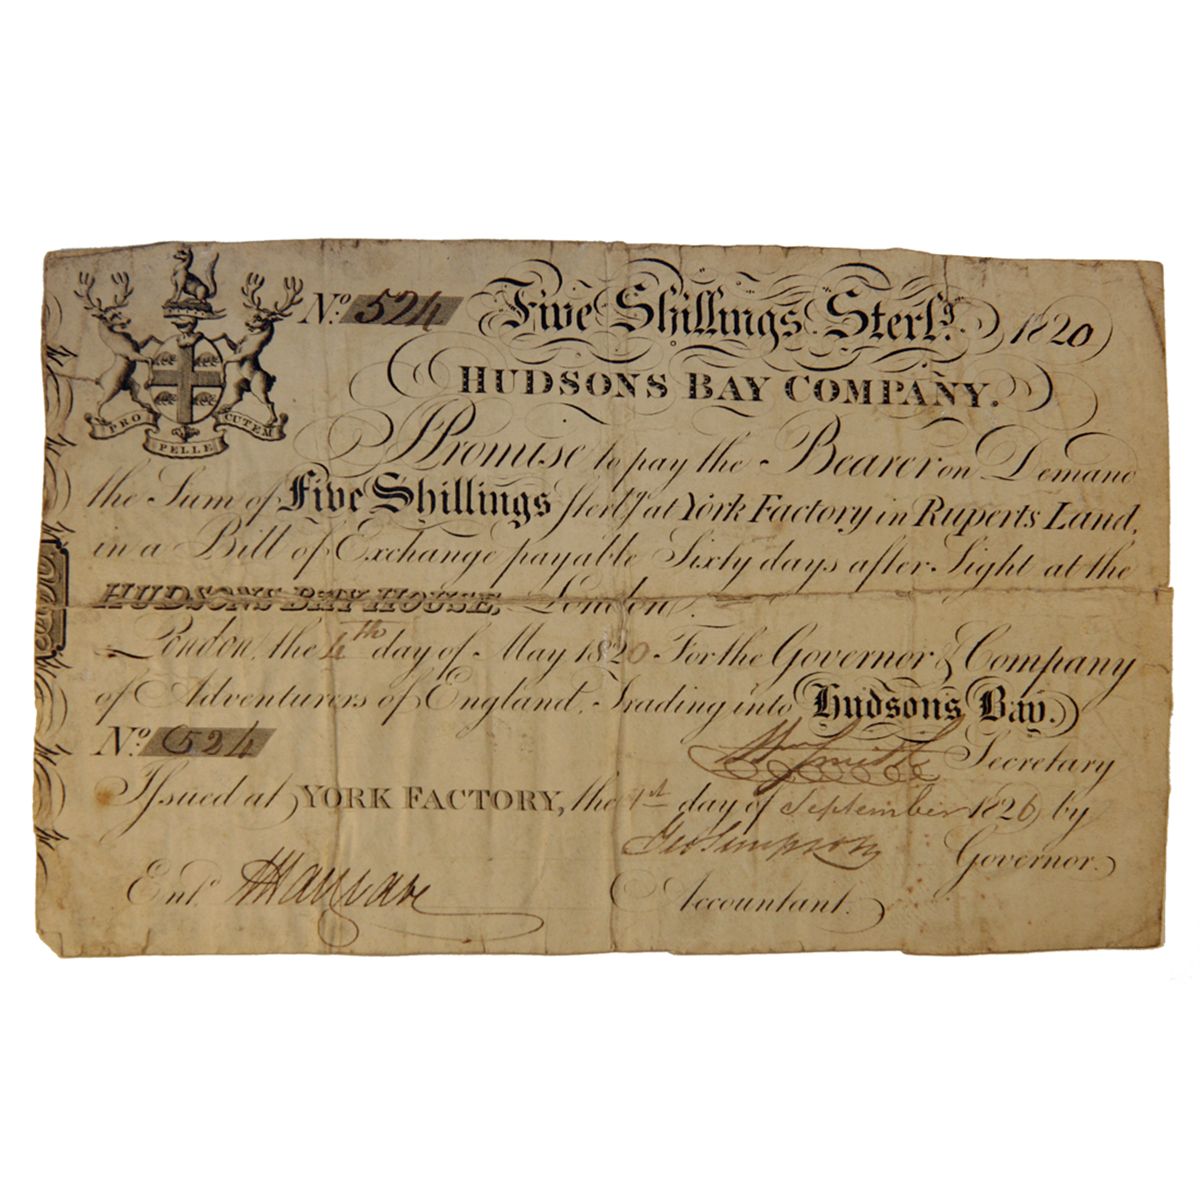 No. 524 Five Shillings Sterlg. 1820
HUDSONS BAY COMPANY.
PRO PELLE CUTEM
I Promise to pay the Bearer on Demand
the Sum of Five Shillings Sterlg. at York Factory in Ruperts Land,
in a Bill of Exchange payable Sixty days after Sight at the
HUDSONS BAY HOUSE, London.
London, the 4th day of May 1820 For the Governor & Company
of Adventurers of England, Trading into Hudsons Bay.
No. 524 Wm Smith Secretary
Issued at YORK FACTORY, the 1st day of September 1826 by
Geo Simpson Governor.
Entd. JHargrave Accountant.